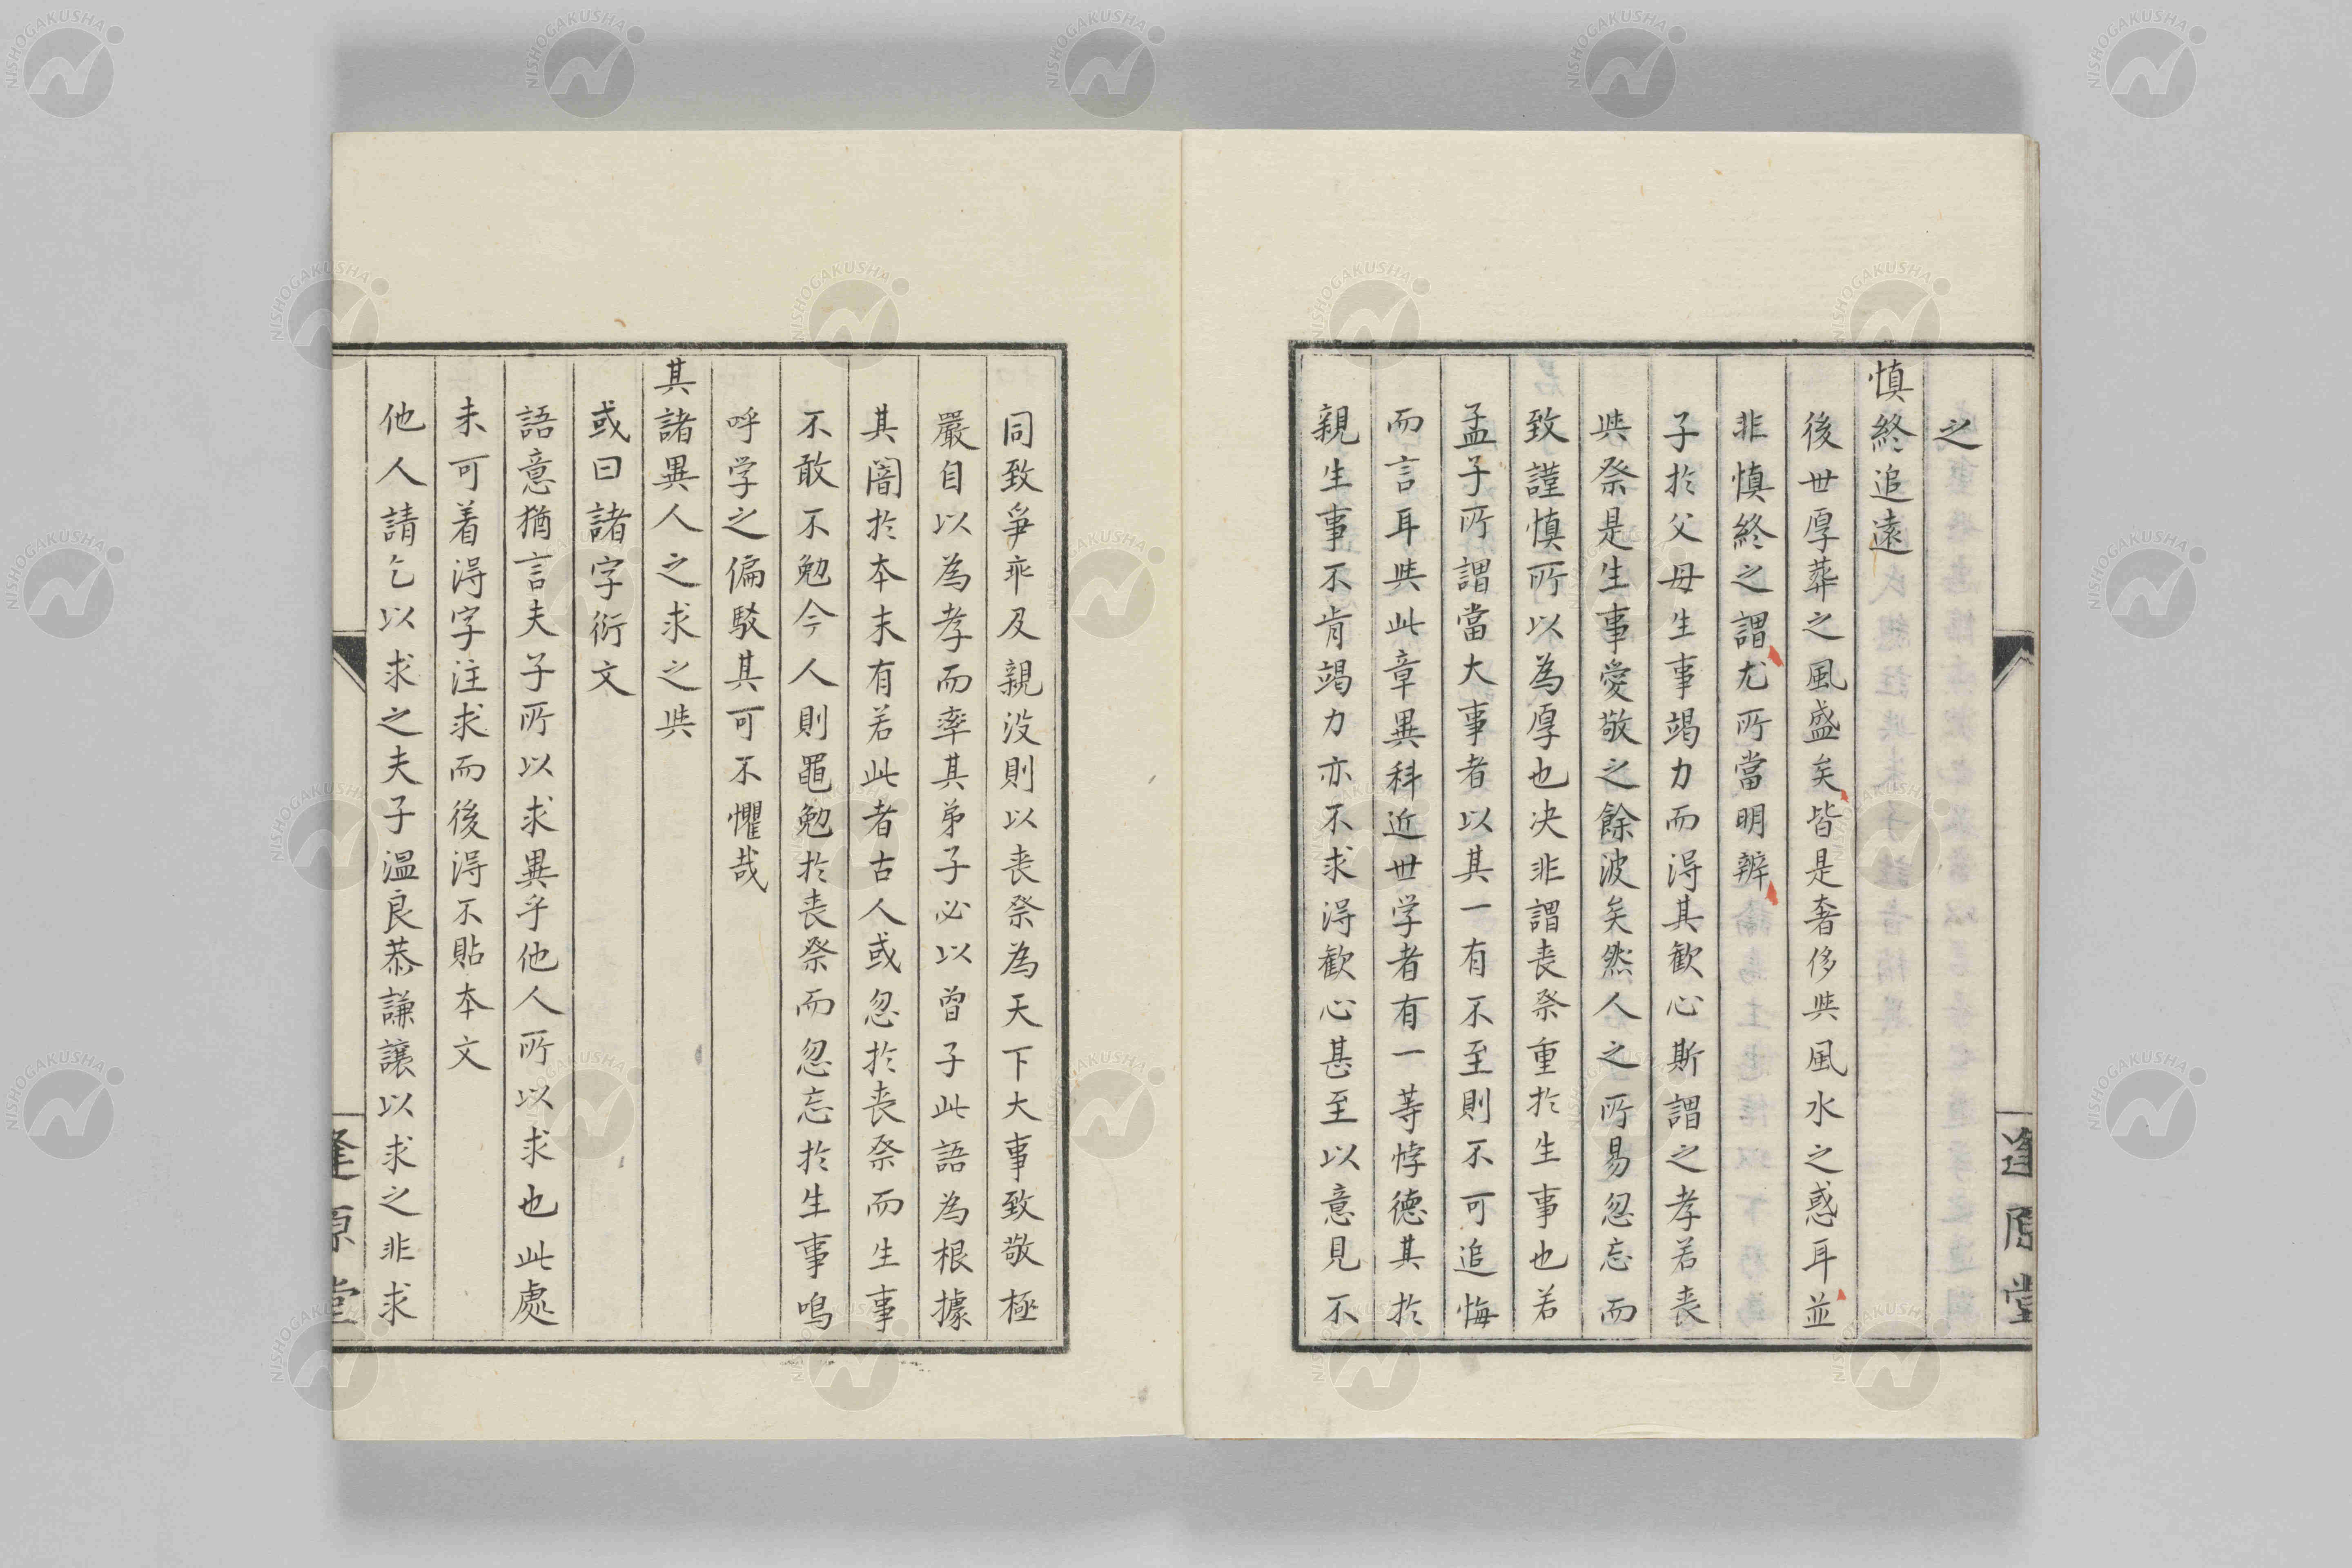 之
慎終追遠
後世厚葬之風盛矣皆是奢侈与風水之惑耳並
非慎終之謂尤所當明辨
子於父母生事竭力而得其歓心斯謂之孝若喪
与祭是生事愛敬之餘波矣然人之所易忽忘而
致謹慎所以為厚也决非謂喪祭重於生事也若
孟子所謂當大事者以其一有不至則不可追悔
而言耳与此章異科近世学者有一等悖德其於
親生事不肯竭力亦不求得歓心甚至以意見不
同致爭乖及親没則以喪祭為天下大事致敬極
嚴自以為孝而率其弟子必以曽子此語為根據
其闇於本末有若此者古人或忽於喪祭而生事
不敢不勉今人則黽勉於喪祭而忽忘於生事鳴
呼学之偏駁其可不懼哉
其諸異人之求之与
或曰諸字衍文
語意猶言夫子所以求異乎他人所以求也此處
未可着得字注求而後得不貼本文
他人請乞以求之夫子温良恭謙讓以求之非求
逢原堂
逢原堂
NISHOGAKUSHA